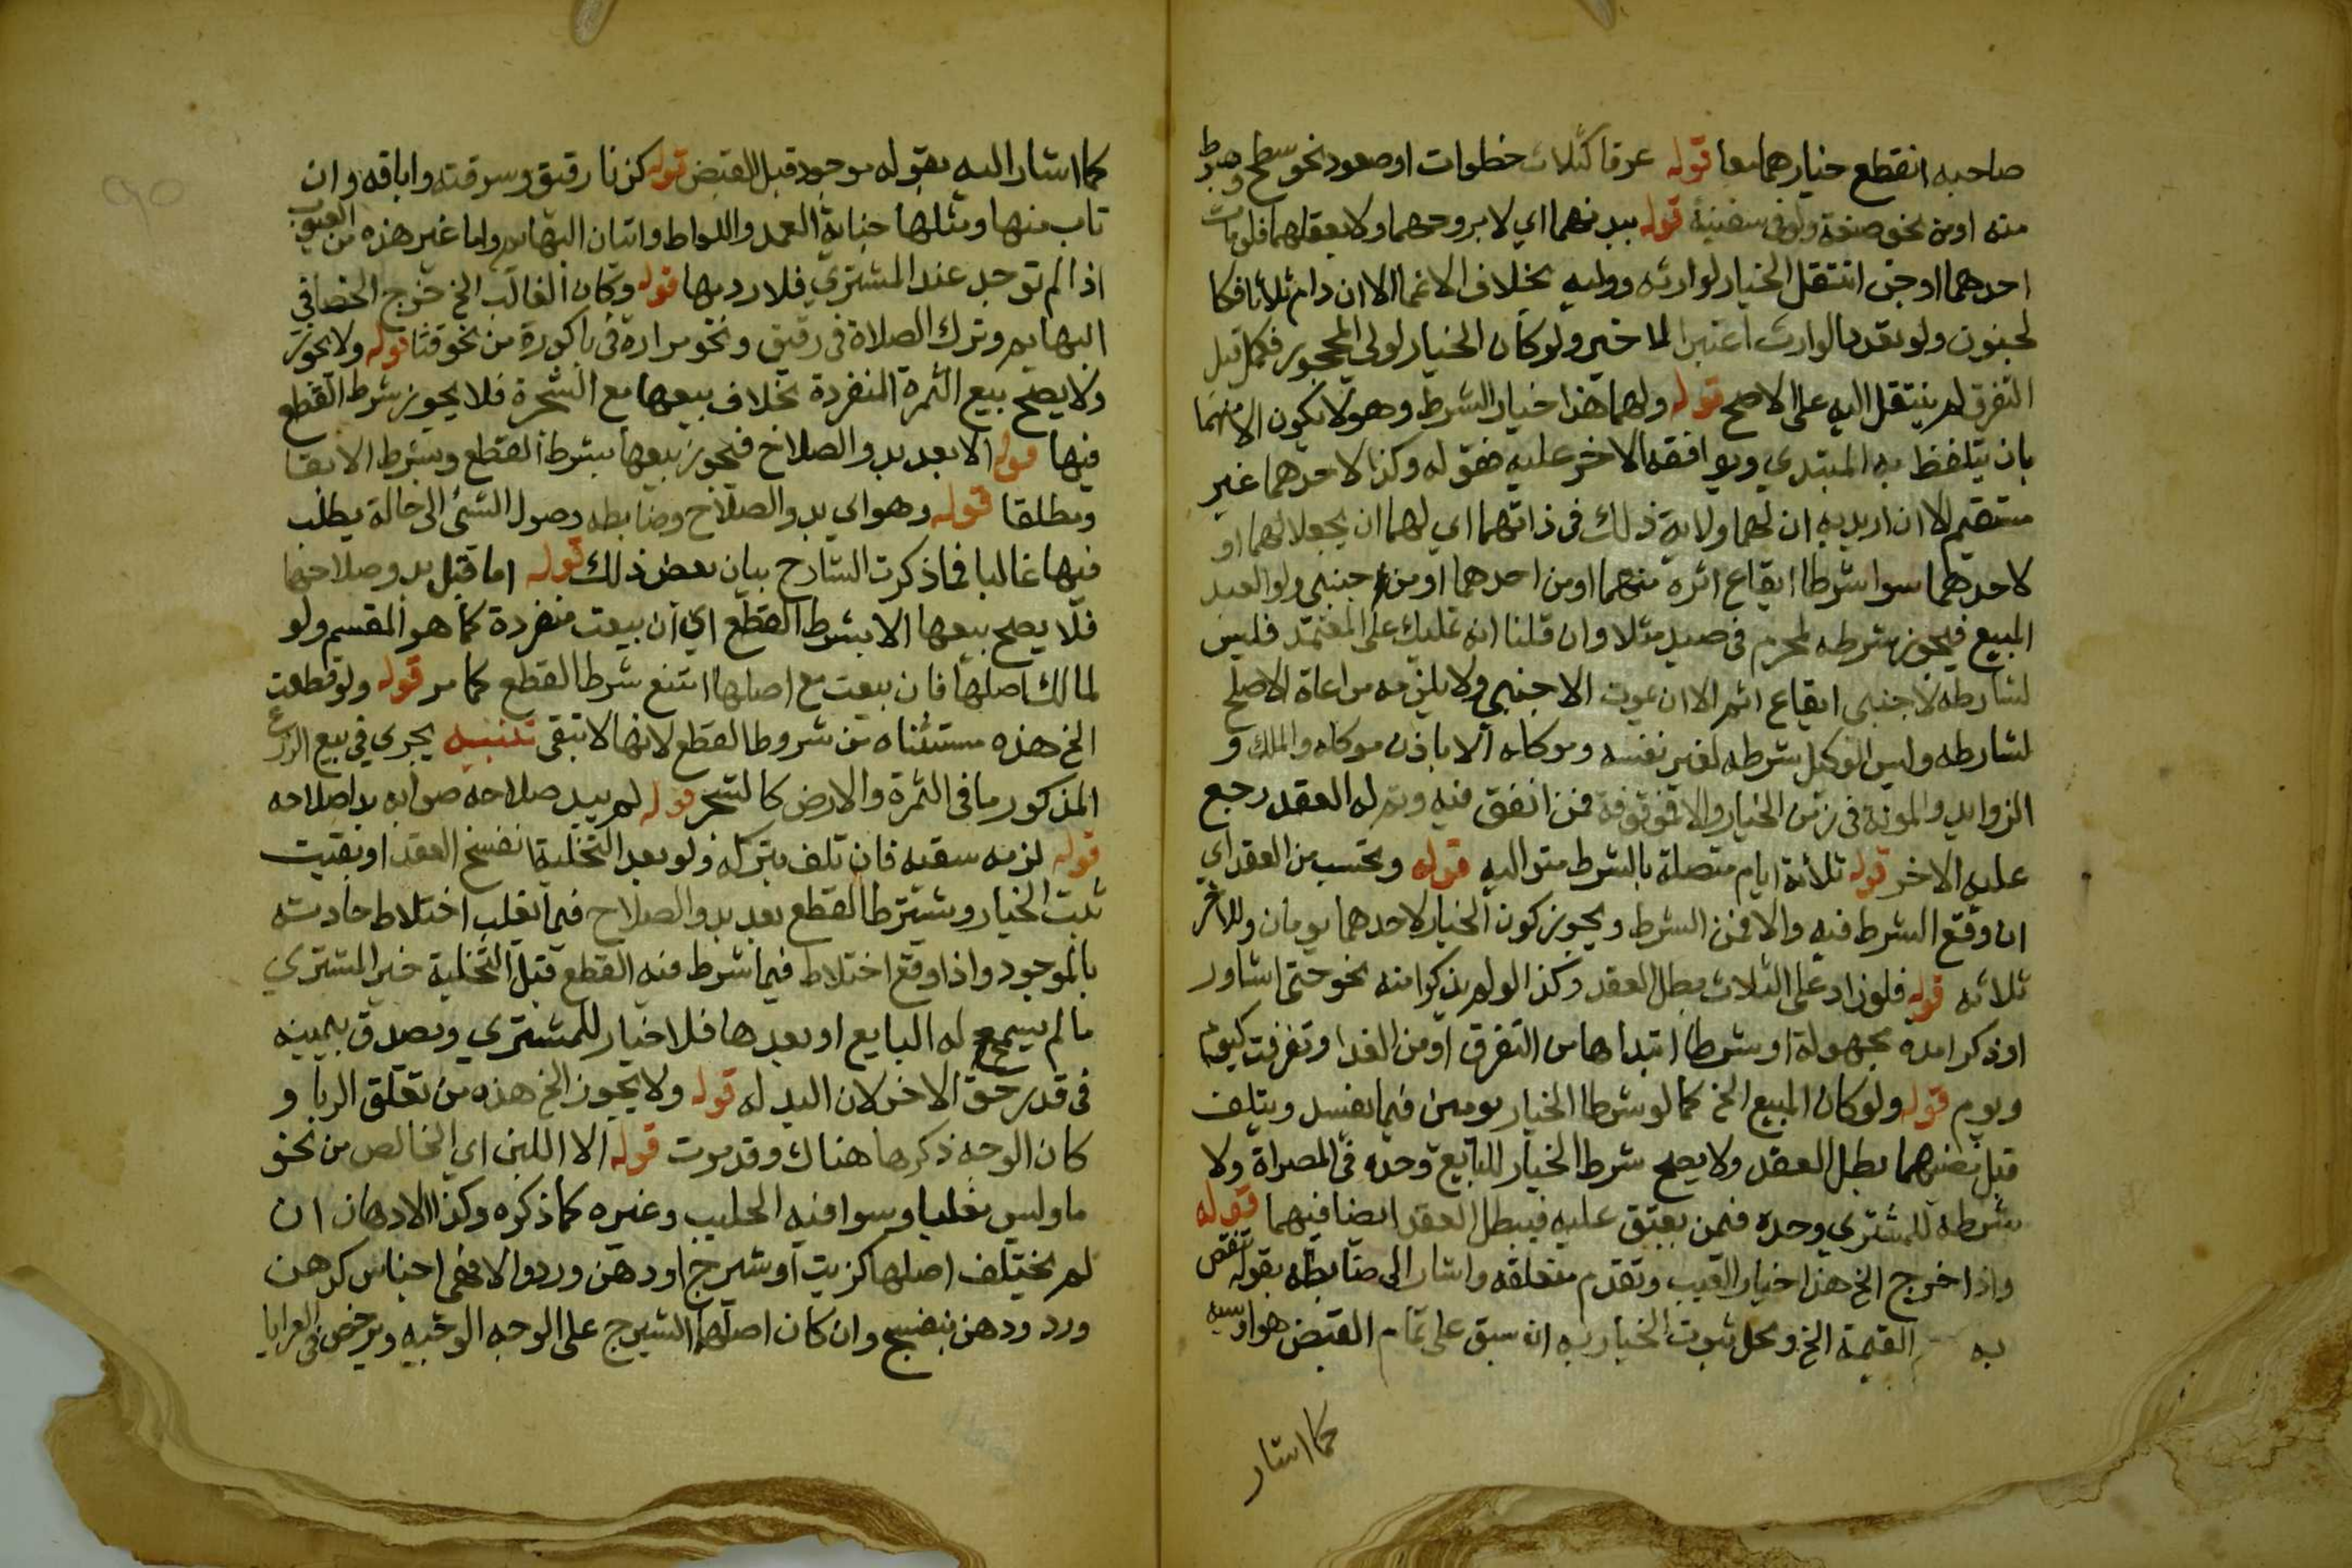 صاحبه انقطع خيارهما معا قوله عرفا كثلاث خطوات او صعود نحو سطح وهبوط
منه او من نحو صفة ولو في سفينة قوله ببدنهما اي لا بروحهما ولا بعقلهما فلو مات
احدهما او جن انتقل الخيار لوارثه ووليه بخلاف الاغما الا ان دام ثلاثا فكا
لجنون ولو تعدد الوارث اعتبر الاخير ولو كان الخيار لولي المحجور فكمل قبل
التفرق لم ينتقل اليه على الاصح قوله ولهما هذا خيار الشرط وهو لا يكون الا منهما
بان يتلفظ به المبتدي ويوافقه الاخر عليه فقوله وكذا لاحدهما غير
مستقيم الا ان اريد به ان لهما ولاية ذلك في ذاتهما اي لهما ان يجعلا لهما او
لاحدهما سوا شرطا ايقاع اثره منهما او من احدهما او من اجنبي ولو العبد
المبيع فيجوز شرطه لمحرم في صيد مثلا وان قلنا انه تمليك على المعتمد فليس
لشارطه لاجنبي ايقاع اثره الا ان يموت الاجنبي ولا يلزمه مراعاة الاصلح
لشارطه وليس الوكيل شرطه لغير نفسه وموكله الا باذن موكله والملك و
الزوايد والمونة في زمن الخيار والا فموقوفة فمن انفق فيه وتم له العقد رجع
على الاخر قوله ثلاثة ايام متصلة بالشرط متواليه قوله وتحسب من العقد اي
ان وقع الشرط فيه والا فمن الشرط ويجوز كون الخيار لاحدهما يومان وللاخر
ثلاثه قوله فلو زاد على الثلاث بطل العقد وكذا لو لم يذكرا مدة نحو حتى اشاور
او ذكرا مدة مجهولة او شرطا ابتداها من التفرق او من الغد او تفرقت كيوم
ويوم قوله ولو كان المبيع الخ كما لو شرطا الخيار يومين فيما يفسد ويتلف
قبل مضيهما بطل العقد ولا يصح شرط الخيار للبايع وحده في المصراة ولا
شرطه للمشتري وحده فمن يعتق عليه فيبطل العقد ايضا فيهما قوله
واذا خرج الخ هذا خيار العيب وتقدم متعلقه واشار الى ضابطه بقوله تنقص
به القيمة الخ ومحل ثبوت الخيار به ان سبق على تمام القبض هو او سببه
كما اشار
كما اشار اليه بقوله موجود قبل القبض قوله كزنا رقيق وسرقته واباقه وان
تاب منها ومثلها جناية العمد واللواط واتيان البهايم واما غير هذه من العيوب
اذا لم توجد عند المشتري فلا رد بها قوله وكان الغالب الخ خرج الخصا في
البهايم وترك الصلاة في رقيق ونحو مرارة في باكورة من نحو قثا قوله ولا يجوز
ولا يصح بيع الثمرة المنفردة بخلاف بيعها مع الشجرة فلا يجوز شرط القطع
فيها قوله الا بعد بدو الصلاح فيجوز بيعها بشرط القطع وبشرط الابقا
ومطلقا قوله وهو اي بدو الصلاح وضابطه وصول الشئ الى حالة يطلب
فيها غالبا فما ذكرت الشارح بيان بعض ذلك قوله اما قبل بدو صلاحها
فلا يصح بيعها الا بشرط القطع اي ان بيعت منفردة كما هو المقسم ولو
لمالك اصلها فان بيعت مع اصلها امتنع شرط القطع كما مر قوله ولو قطعت
الخ هذه مستثناه من شروط القطع لانها لا تبقى تنبيه يجري في بيع الزرع
المذكور ما في الثمرة والارض كالشجر قوله لم يبد صلاحه صوابه بدا صلاحه
قوله لزمه سقيه فان تلف بتركه ولو بعد التخلية انفسخ العقد او تعيبت
ثبت الخيار ويشترط القطع بعد بدو الصلاح فيما يغلب اختلاط حادثه
بالموجود واذا وقع اختلاط فيما شرط فيه القطع قبل التخلية خير المشتري
ما لم يسمح له البايع او بعدها فلا خيار للمشتري وتصدق بيمينه
في قدر حق الاخر لان اليد له قوله ولا يجوز الخ هذه من تعلق الربا و
كان الوجه ذكرها هناك وقد مرت قوله الا اللبن اي الخالص من نحو
ما وليس مغليا وسوا فيه الحليب وغيره كما ذكره وكذا الادهان ان
لم يختلف اصلها كزيت او شيرج او دهن ورد والا فهي اجناس كدهن
ورد ودهن بنفسج وان كان اصلها الشيرج على الوجه الوجيه ويرخص في العرايا